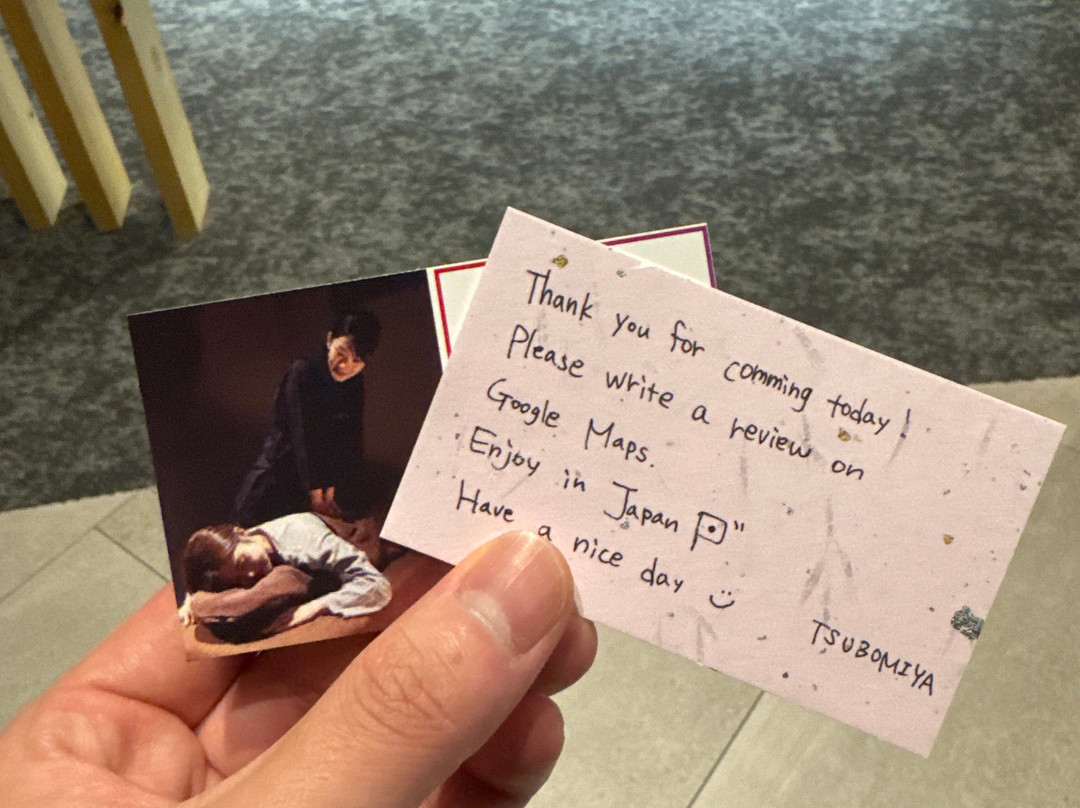 Thank you for comming today!
Please write a review on
Google Maps.
Enjoy in Japan
Have a nice day
TSUBOMIYA